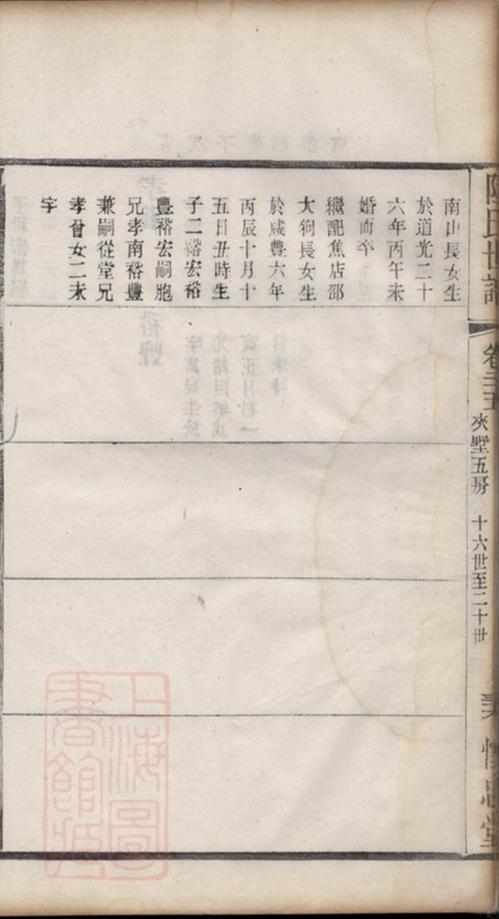 南山長女生
於道光二十
六年丙午未
婚而卒
繼配焦店邵
大狗長女生
於咸豐六年
丙辰十月十
五日丑時生
子二裕宏裕
豐裕宏嗣胞
兄孝南裕豐
兼嗣從堂兄
孝曾女二未
字
氏世譜
卷三十五
夾墅五房
十六世至二十世
上海圖書館藏